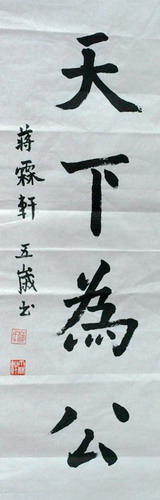 天下為公
蔣霖軒 五歲书